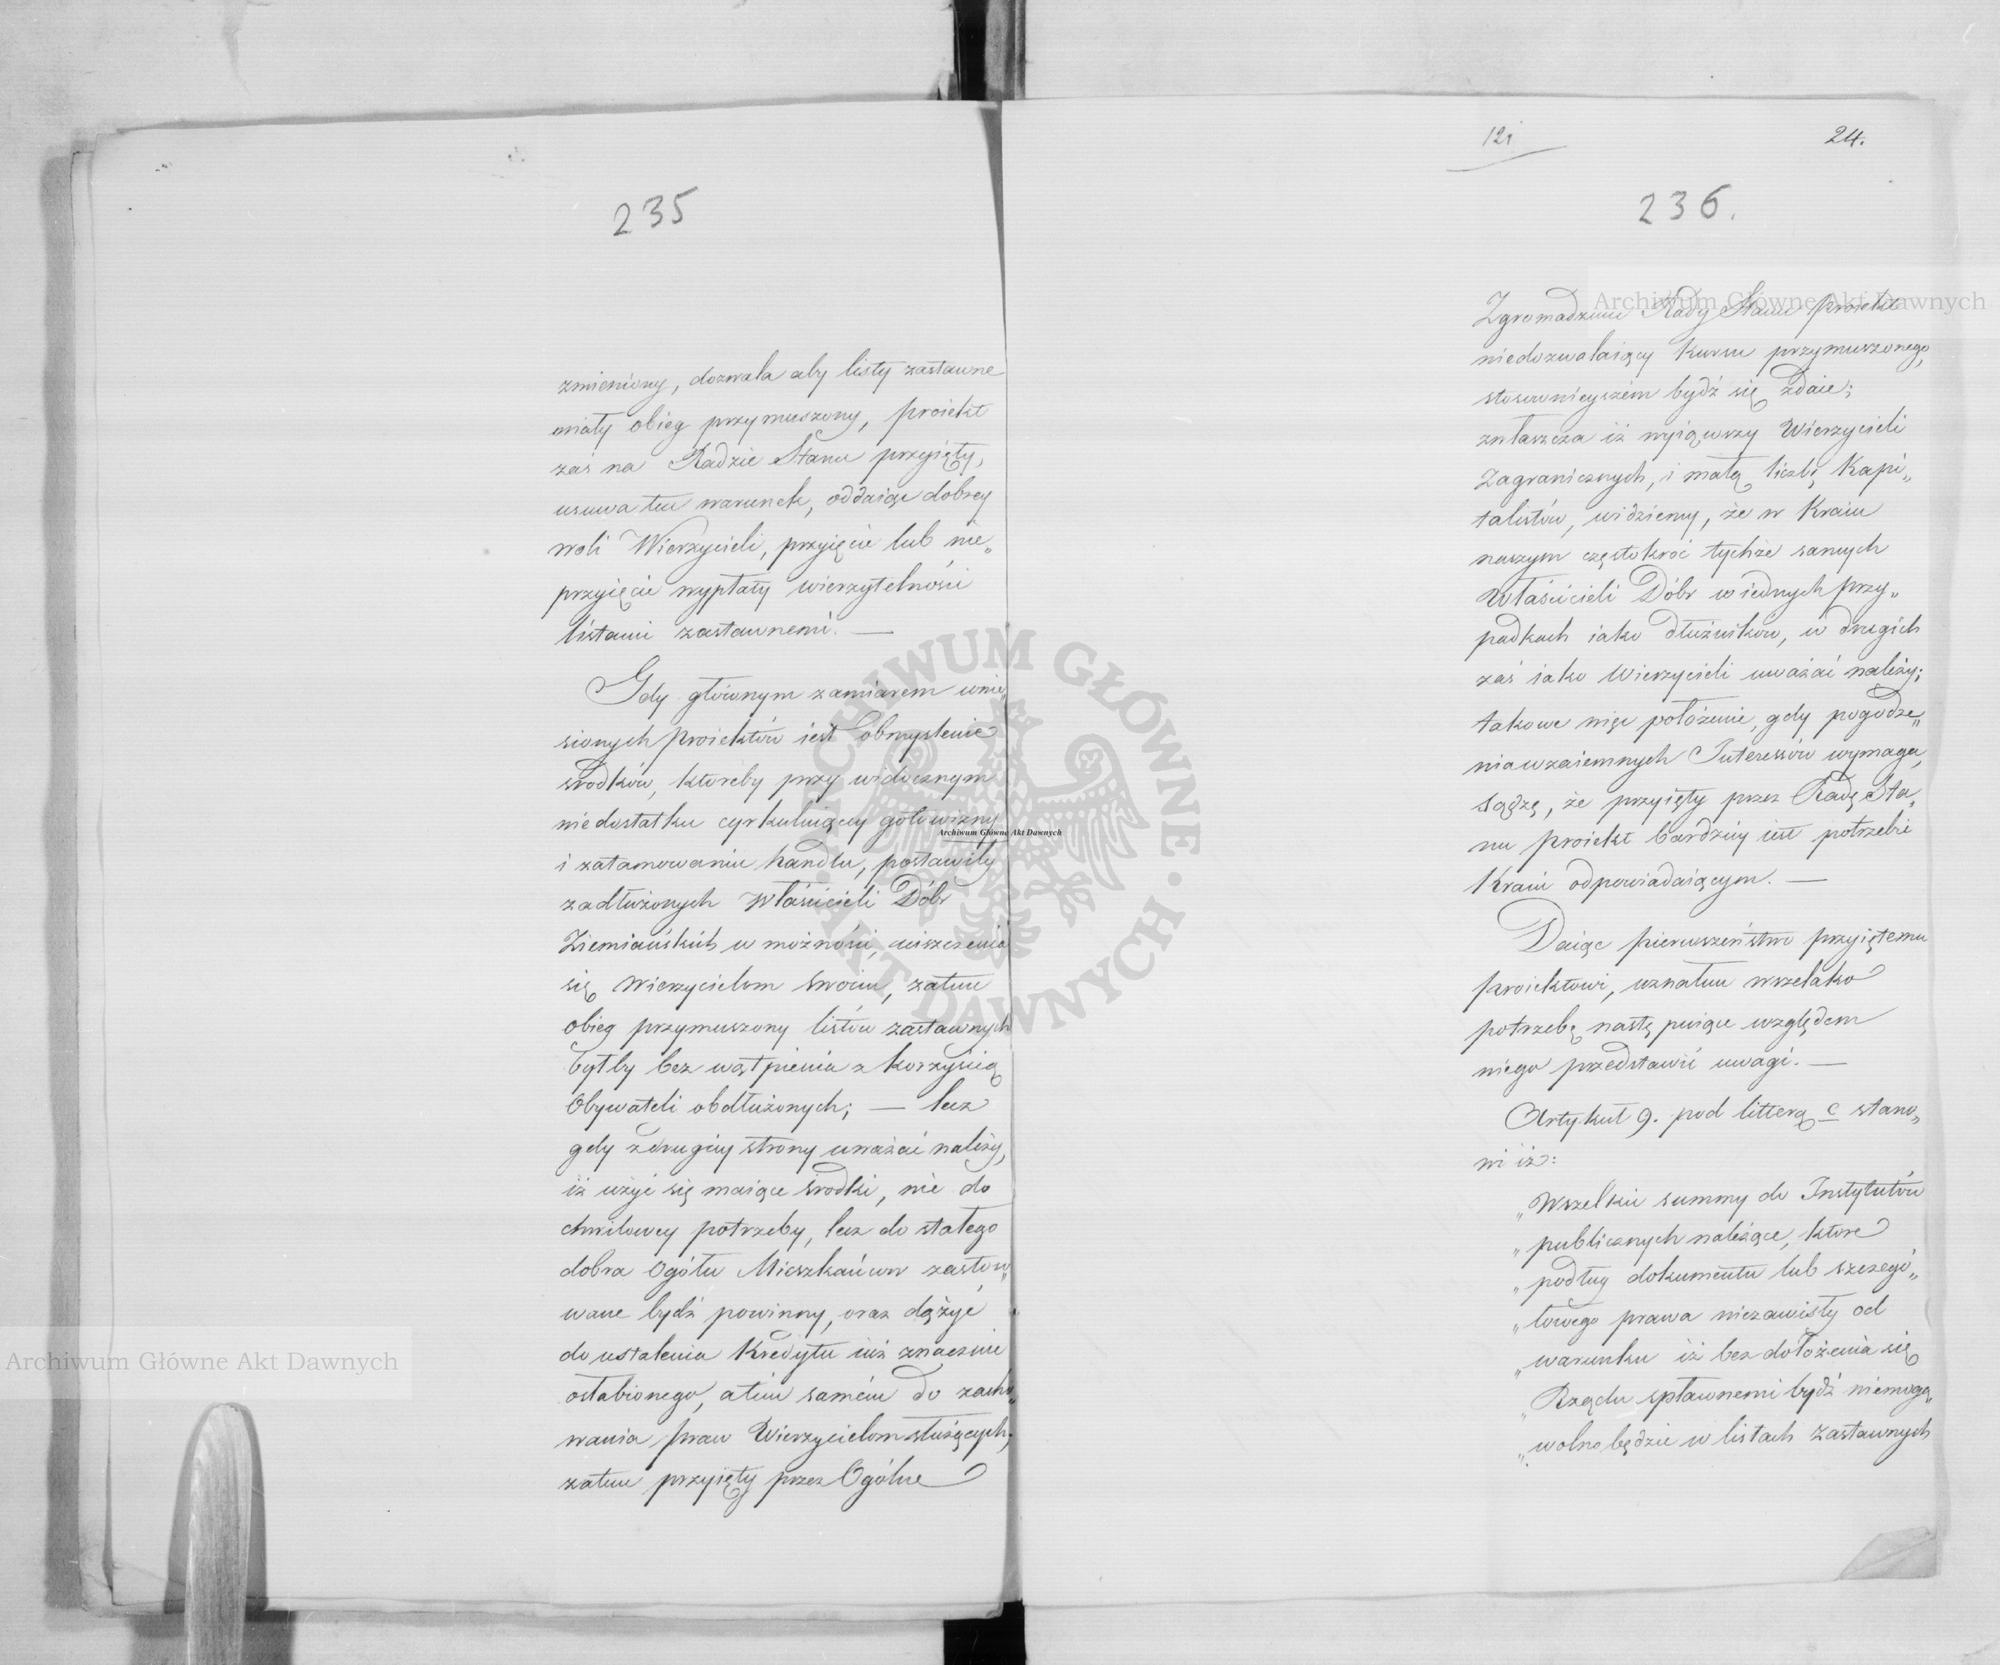 235
zmieniony, dozwala aby listy zastawne
miały obieg przymuszony, proiekt
zaś na Radzie Stanu przyięty,
usuwa ten warunek, oddaiąc dobrey
woli Wierzycieli, przyięcie lub nie„
przyięcie wypłaty wierzytelności
listami zastawnemi. —
Gdy głównym zamiarem wnie„
sionych proiektów iest obmyślenie
środków, któreby przy widocznym
niedostatku cyrkuluiącey gotowizny
i zatamowaniu handlu, postawiły
zadłużonych Właścicieli Dóbr
Ziemiańskich w możności, uiszczenia
się Wierzycielom swoim, zatem
obieg przymuszony listów zastawnych
byłby bez wątpienia z korzyścią
Obywateli obdłużonych; — lecz
gdy z drugiey strony uważać należy,
iż użyć się maiące środki, nie do
chwilowey potrzeby, lecz do stałego
dobra Ogółu Mieszkańców zastoso„
wane bydź powinny, oraz dążyć
do ustalenia Kredytu iuż znacznie
osłabionego, a tém samém do zacho„
wania praw Wierzycielom służących;
zatem przyięty przez Ogólne
121
24.
236.
Zgromadzenie Rady Stanu proiekt
niedozwalaiący kursu przymuszonego,
stosownieyszém bydź się zdaie;
zwłaszcza iż wyiąwszy Wierzycieli
Zagranicznych, i małą liczbę Kapi„
talistów, widziemy, że w Kraiu
naszym częstokroć tychże samych
Właścicieli Dóbr w iednych przy„
padkach iako dłużników, w drugich
zaś iako Wierzycieli uważać należy;
takowe więc położenie, gdy pogodze„
nia wzaiemnych Interessów wymaga,
sądzę, że przyięty przez Radę Sta„
nu proiekt bardziey iest potrzebie
Kraiu odpowiadaiącym. —
Daiąc pierwszeństwo przyiętemu
proiektowi, uznałem wszelako
potrzebę następuiące względem
niego przedstawić uwagi. —
Artykuł 9. pod litterą c stano„
wi iż:
„Wszelkie summy do Instytutów
„publicznych należące, które
„podług dokumentu lub szczegó„
„łowego prawa niezawisły od
„warunku iż bez dołożenia się
„Rządu spławnemi bydź niemogą„
„wolno będzie w listach zastawnych
Archiwum Główne Akt Dawnych
Archiwum Główne Akt Dawnych
Archiwum Główne Akt Dawnych
ARCHIWUM GŁÓWNE · AKT DAWNYCH ·